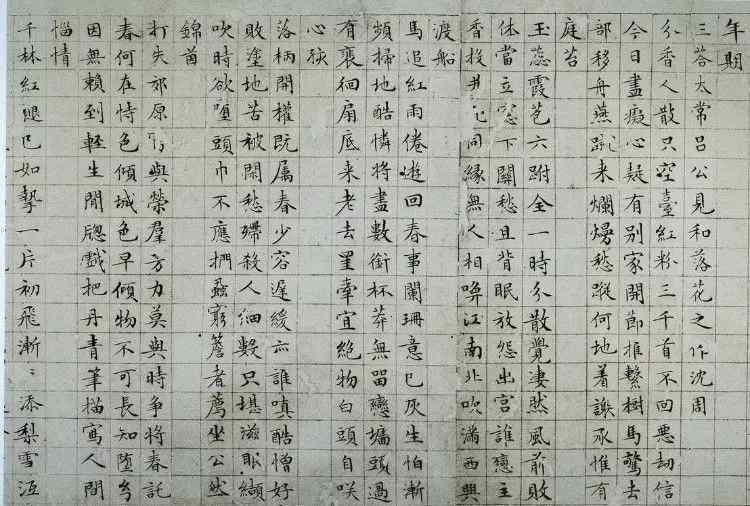 年期
三荅太常呂公見和落花之作沈周
分香人散只空臺紅粉三千首不回惡劫信
今日盡癡心疑有别家開節推繫樹馬驚去
部移舟燕蹴来爛熳愁蹤何地着謝承惟有
庭苔
玉蕊霞苞六跗全一時分散覺凄然風前敗
体當立窓下關愁且背眠放怨出宫誰戀主
香投井死同縁無人相喚江南北吹滿西興
渡船
馬追紅雨倦遊回春事闌珊意已灰生怕漸
頻掃地酷憐将盡數銜杯莽無留戀墻頭過
有裏徊扇底来老去罣牽宜絶物白頭自咲
心孩
落柄開權既属春少容遲緩亦誰嗔酷憎好
敗塗地苦被閑愁殢殺人細數只堪滋眼纈
吹時欲堕頭巾不應捫蝨窮簷者薦坐公然
錦茵
打失郊原與榮羣芳力莫與時争将春託
春何在恃色傾城色早傾物不可長知堕幻
因無賴到輕生閒牕戲把丹青筆描寫人間
惱情
千林紅褪已如摯一片初飛漸〻添梨雪沍